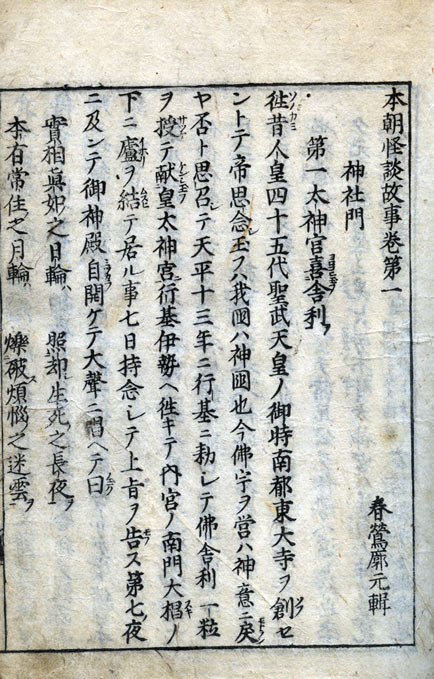 本朝怪談故事巻第一
春鶯廓元輯
神社門
第一太神宮喜舎利ヲ
往昔人皇四十五代聖武天皇ノ御時南都東大寺ヲ創セ
ントテ帝思念玉フハ我國ハ神國也今佛宇ヲ営ハ神意ニ戻
ヤ否ト思召シテ天平十三年ニ行基ニ勅シテ佛舎利一粒
ヲ授テ献皇太神宮ニ行基伊勢ヘ往キテ内宮ノ南門大椙ノ
下ニ廬ヲ結テ居ル事七日持念シテ上旨ヲ告ス第七夜
ニ及ンテ御神殿自開ケテ大聲ニ唱ヘテ曰
實相真如之日輪 照却生死之長夜ヲ
本有常住之月輪 爍破煩惱之迷雲ヲ